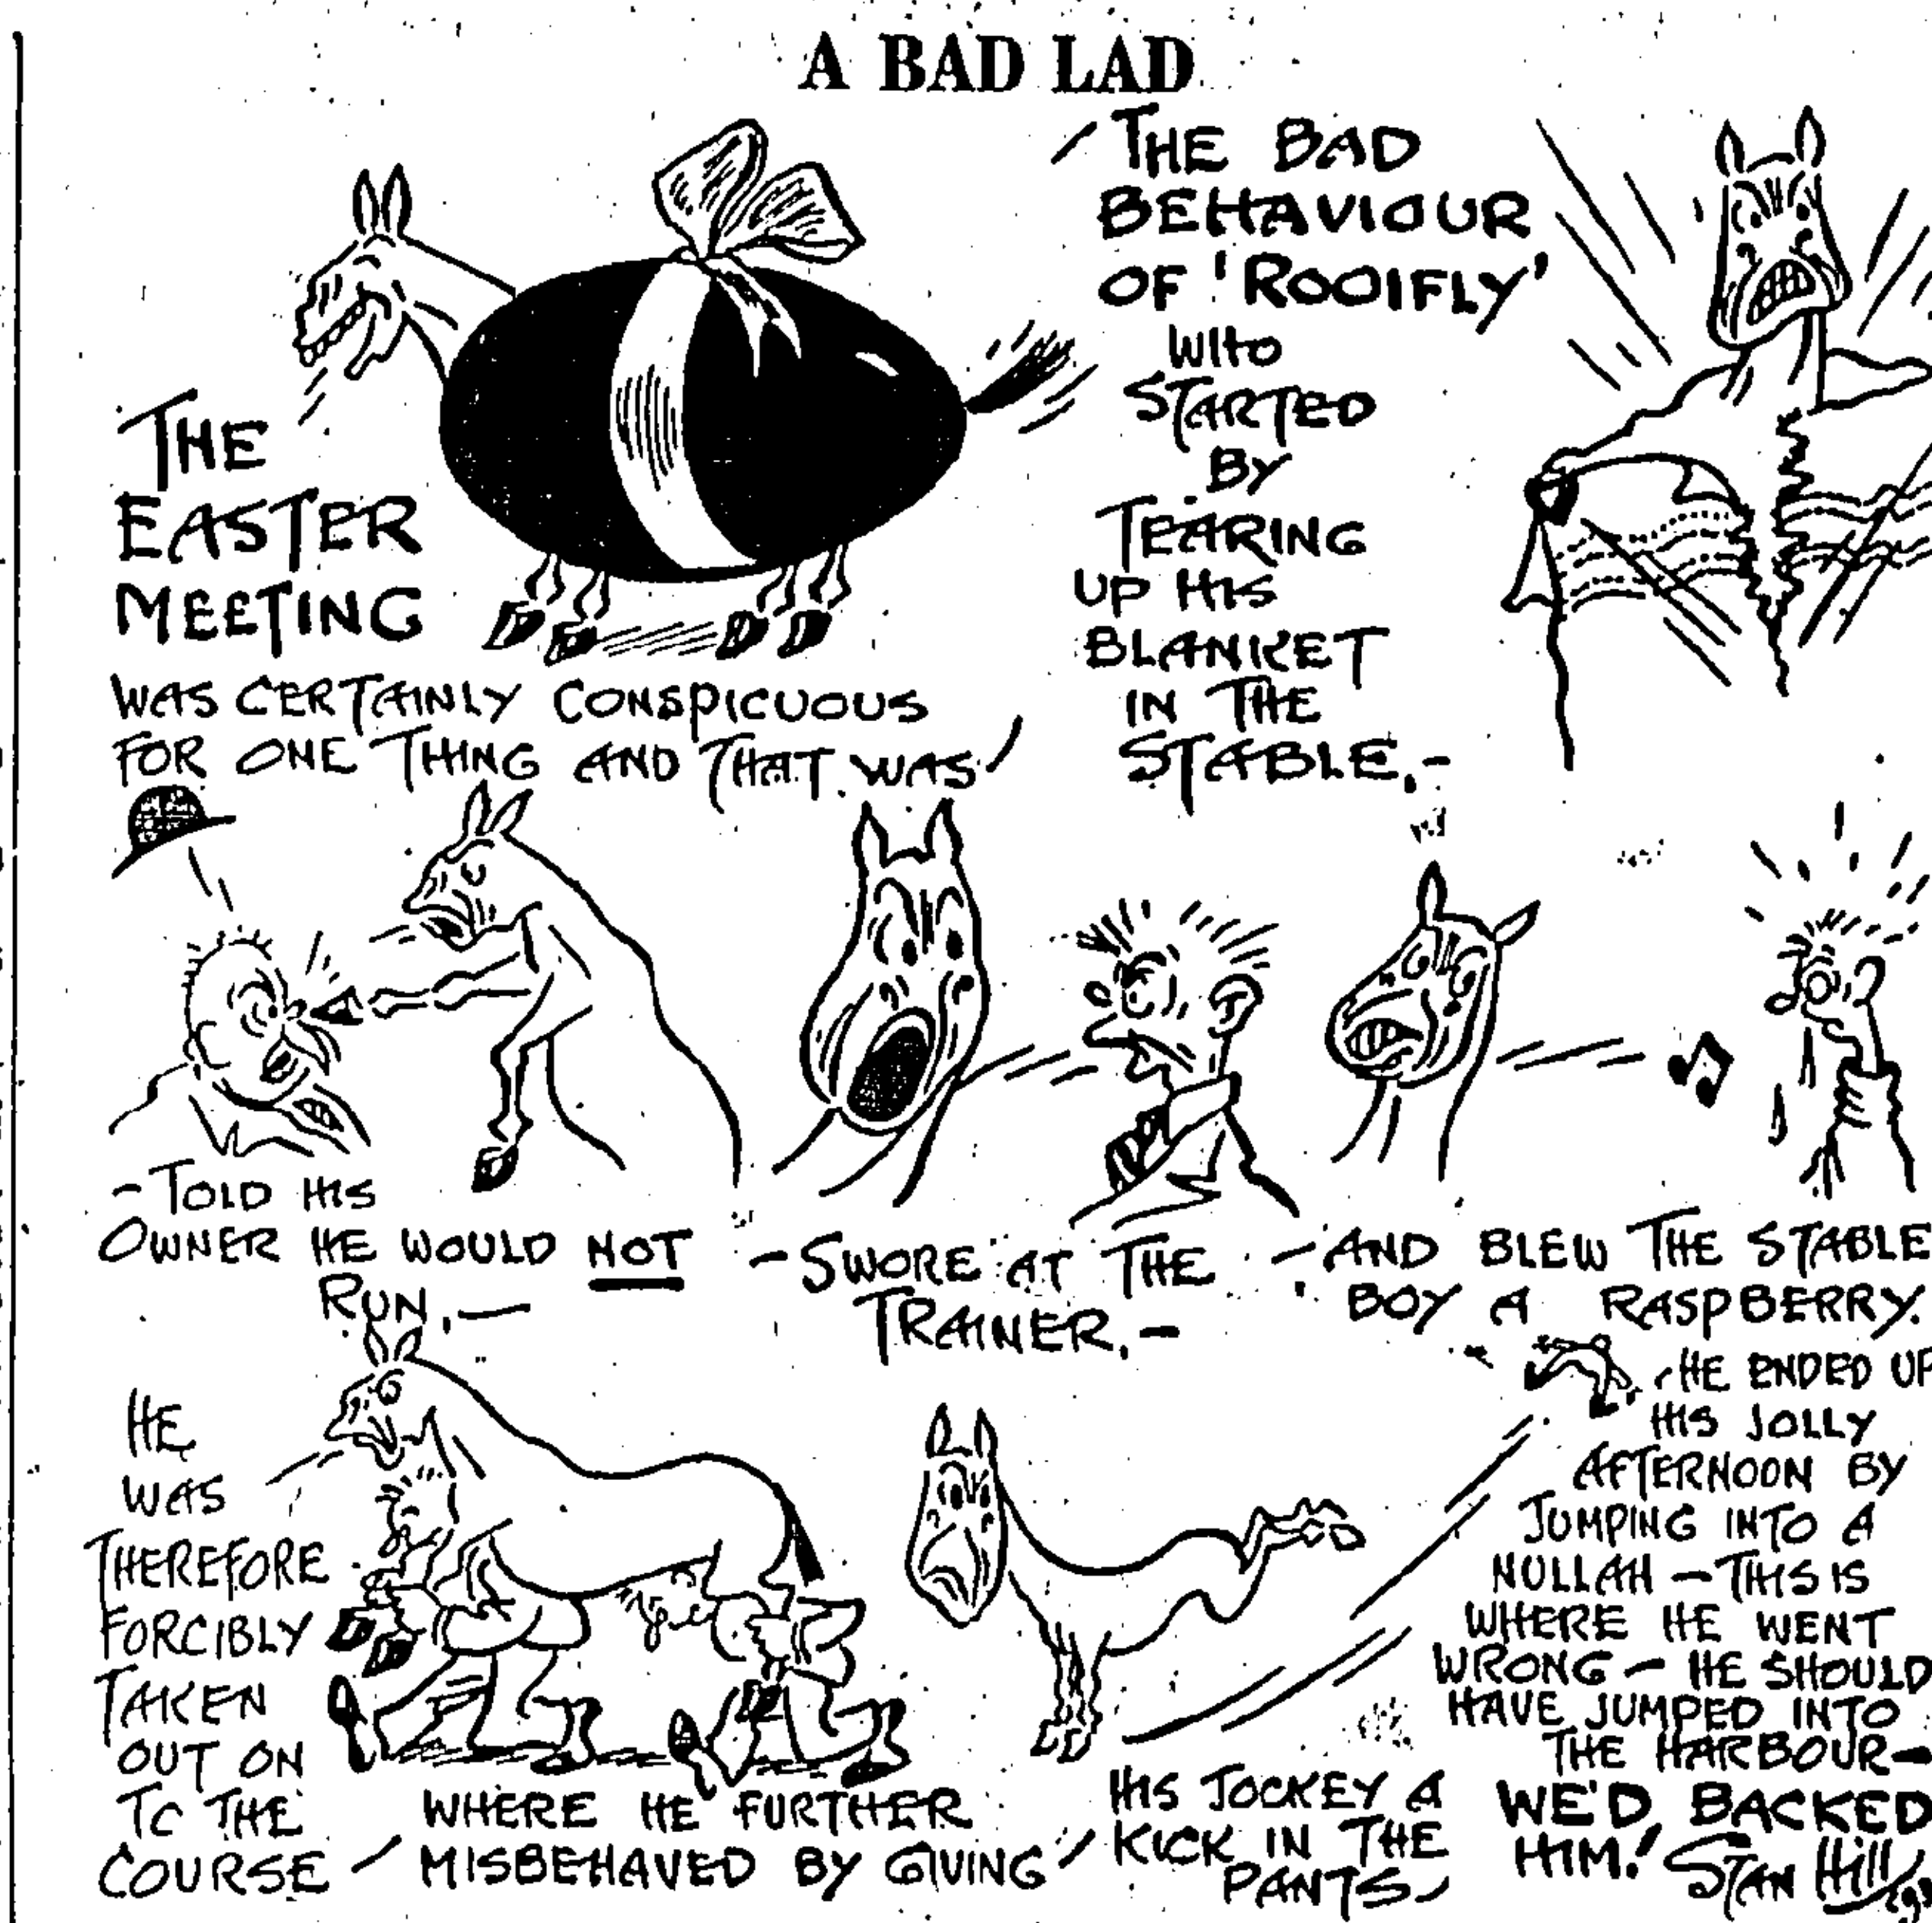 A BAD LAD
THE
EASTER
MEETING
WAS CERTAINLY CONSPICUOUS
FOR ONE THING AND THAT WAS
THE BAD
BEHAVIOUR
OF 'ROOIFLY'
WHO
STARTED
BY
TEARING
UP HIS
BLANKET
IN THE
STABLE,-
- TOLD HIS
OWNER HE WOULD NOT
RUN,-
- SWORE AT THE
TRAINER,-
- AND BLEW THE STABLE
BOY A RASPBERRY.
HE
WAS
THEREFORE
FORCIBLY
TAKEN
OUT ON
TO THE
COURSE
WHERE HE FURTHER
MISBEHAVED BY GIVING
HIS JOCKEY A
KICK IN THE
PANTS
HE ENDED UP
HIS JOLLY
AFTERNOON BY
JUMPING INTO A
NULLAH - THIS IS
WHERE HE WENT
WRONG - HE SHOULD
HAVE JUMPED INTO
THE HARBOUR -
WE'D BACKED
HIM!
STAN Hill